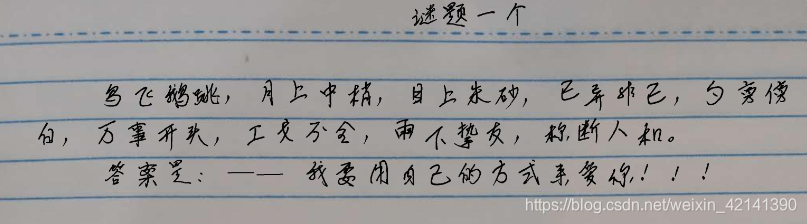 谜题一个
鸟飞鹅跳，月上中梢，目上朱砂，已异非已，勺旁傍
白，万事开头，工戈不全，雨下挚友，称断人和。
答案是：—— 我要用自己的方式来爱你！！！
https://blog.csdn.net/weixin_42141390